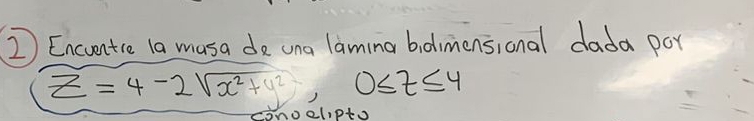 2) Encuentre la masa de una lámina bidimensional dada por
Z = 4 - 2√x²+y² , 0≤z≤4
conoelipto